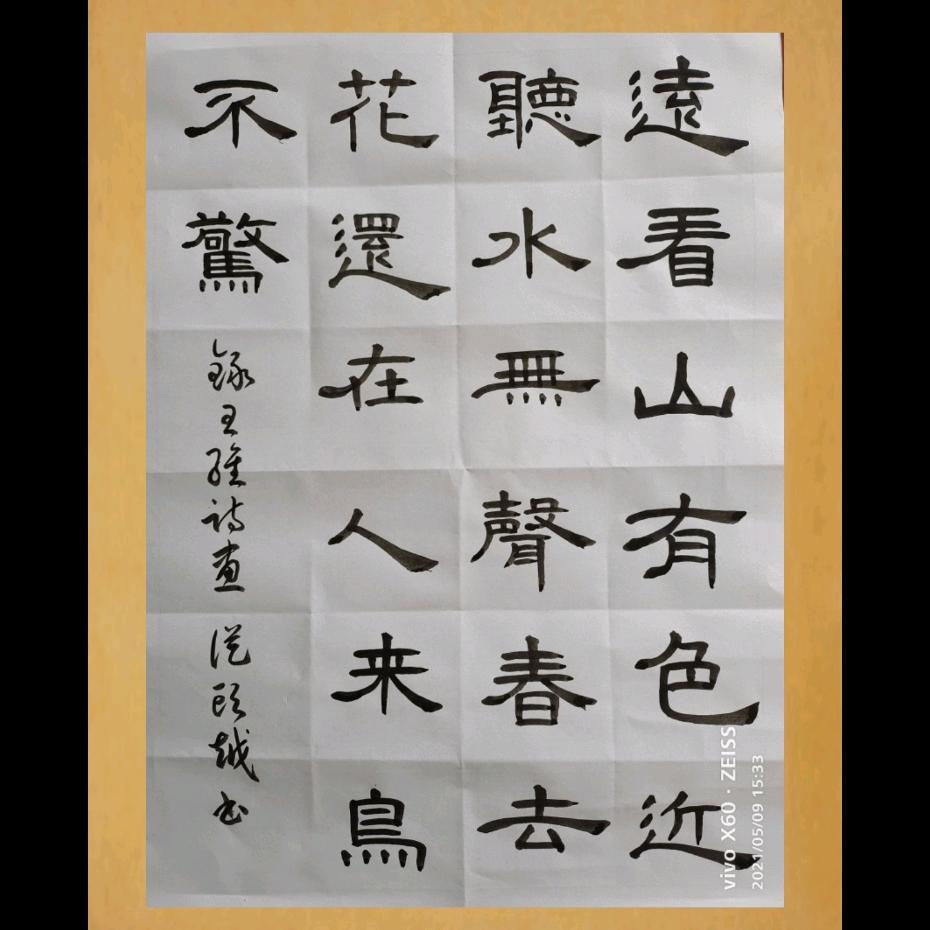 遠看山有色近
聽水無聲春去
花還在人来鳥
不驚
錄王維詩畫
從頭越书
vivo X60 · ZEISS
2021/05/09 15:33